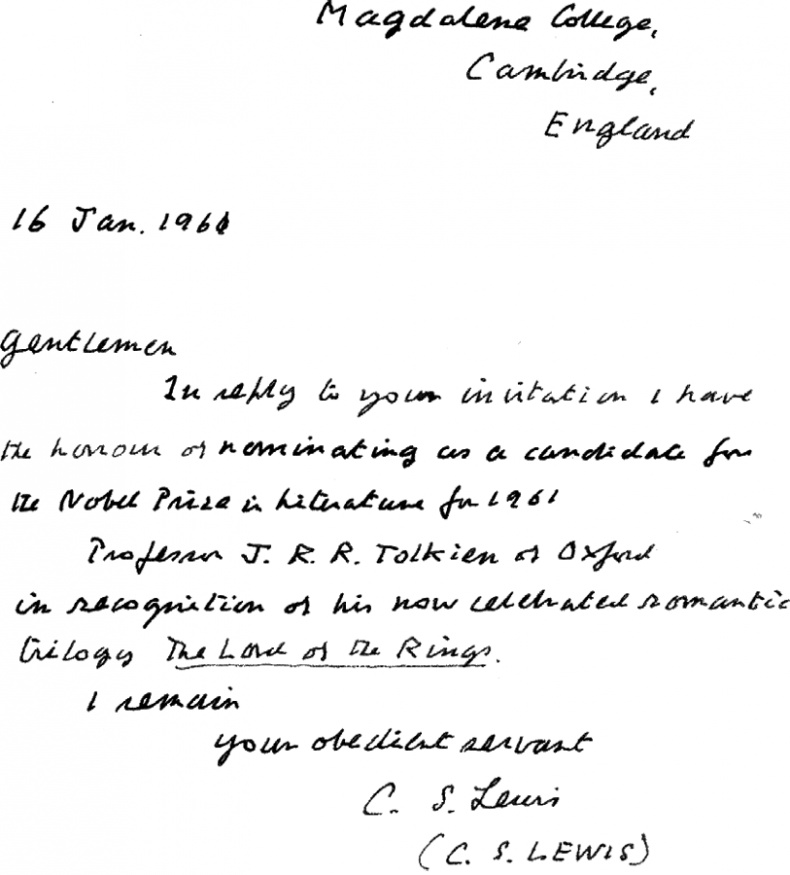 Magdalene College,
Cambridge,
England
16 Jan. 1961
Gentlemen
In reply to your invitation I have
the honour of nominating as a candidate for
the Nobel Prize in Literature for 1961
Professor J. R. R. Tolkien of Oxford
in recognition of his now celebrated romantic
trilogy The Lord of the Rings.
I remain
your obedient servant
C. S. Lewis
(C. S. LEWIS)